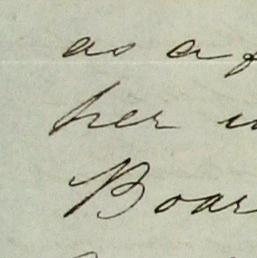 as a
her
Boar